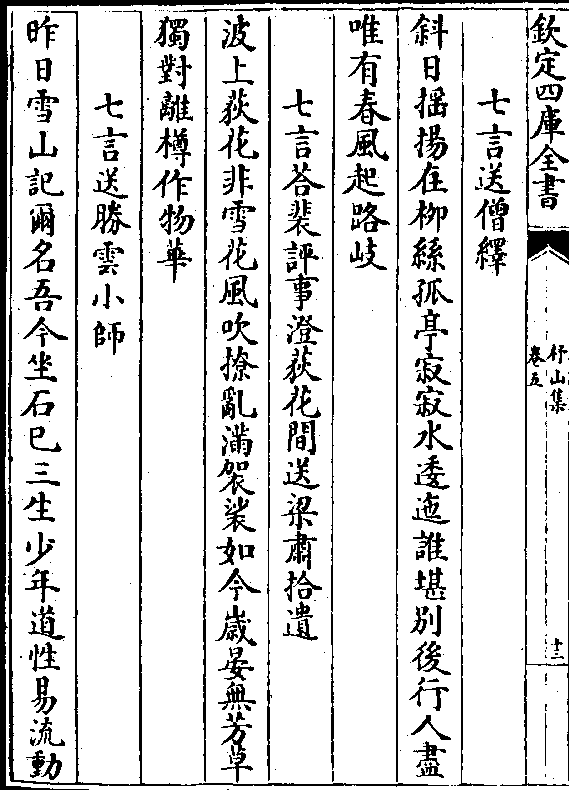 欽定四庫全書
杼山集
卷五
十二
七言送僧繹
斜日摇揚在栁絲孤亭寂寂水逶迤誰堪别後行人盡
唯有春風起路岐
七言荅裴評事澄荻花間送梁肅拾遺
波上荻花非雪花風吹撩亂滿袈裟如今歳晏無芳草
獨對離樽作物華
七言送勝雲小師
昨日雪山記爾名吾今坐石已三生少年道性易流動